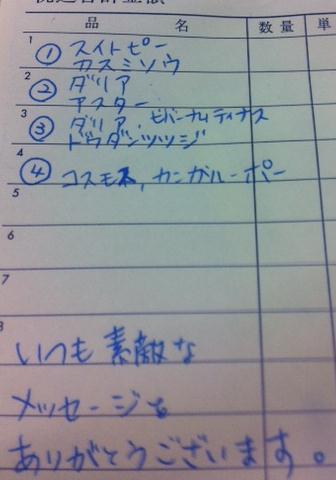 税込合計金額
品 名 数量 単
1 ① スイトピー
カスミソウ
2 ② ダリア
アスター
3 ③ ダリア、ビバーナムティナス
ドウダンツツジ
4 ④ コスモス, カンガルーポー
5
6
7
8
いつも素敵な
メッセージを
ありがとうございます。